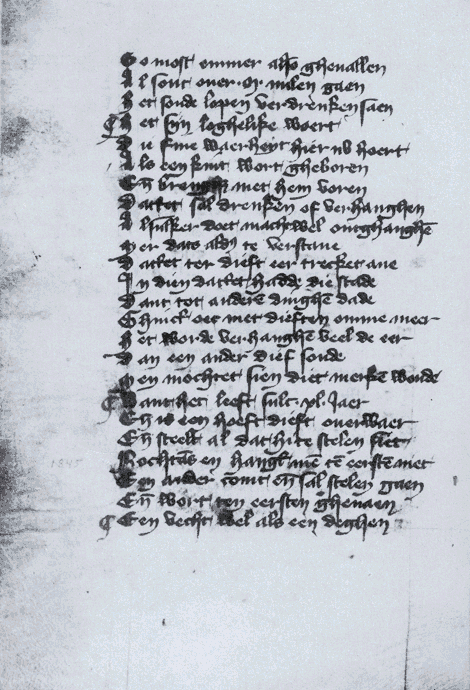 So most emmer also ghevallen
Al sout over .M. milen gaen
Het soude lopen verdrenken saen
Het syn loghelike woert
Du sine waerheyt hier nv hoert
Als een kint wort gheboren
En met hem voren
Dattet sal drenken of verhanghen
Alsulker doet mach wel ontghanghē
Mer dats aldus te verstane
Dattet ter dieft eer trecket ane
In dien dattet hadde die stade
Dant tot anderē dinghē dade
Ghinck oec met dieften omme meer
Het worde verhanghē veel de eer
Dan een ander dief soude
Men mochtet sien diet merkē woude
Want het leeft sulc .xl. Jaer
En is een hoeft dieft overwaer
En steelt al dat hi te stelen
Nochtās en hangt mē tē eerstē niet
Een ander comt eñ sal stelen gaen
Eñ wort ten eersten ghevaen
Een vecht wel als een deghen
1845